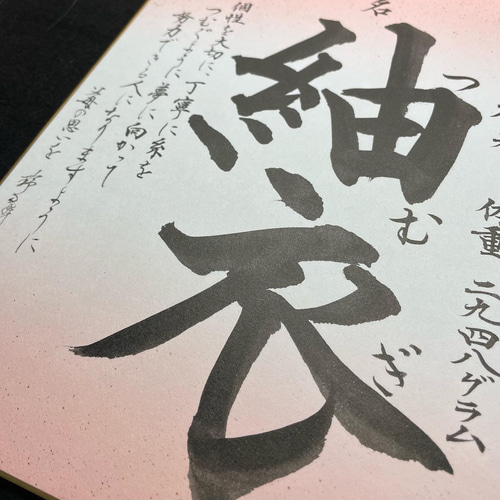 体重 二九四八グラム
名
紬衣
つむぎ
個性を大切に、丁寧に糸を
つむぐように夢に向かって
努力できる人になりますように
父母の思いを